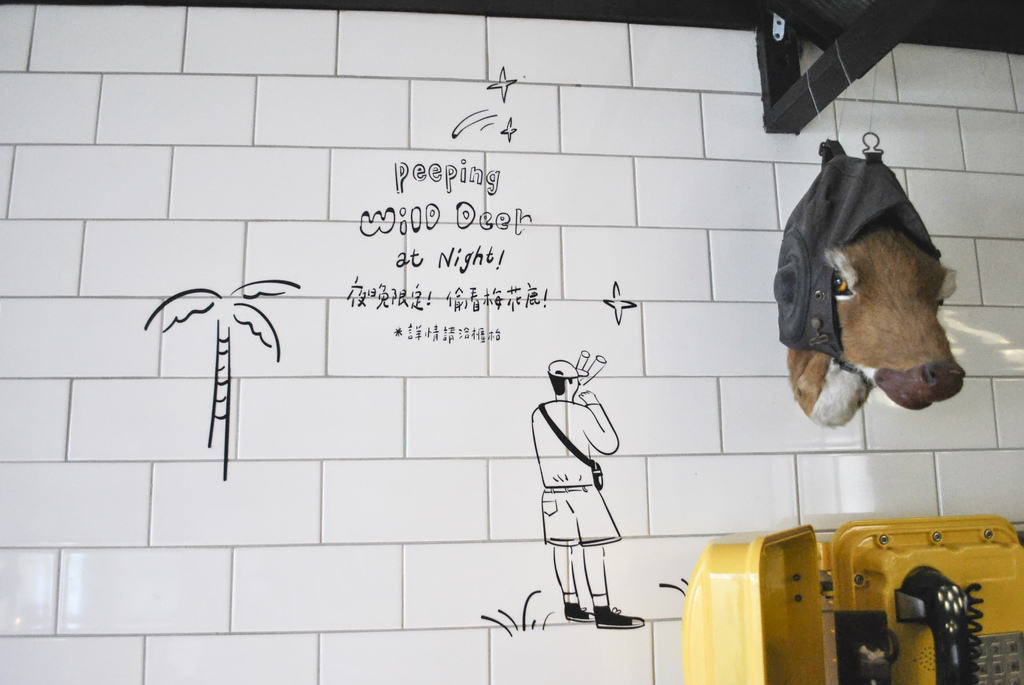 peeping
WilD Deer
at Night!
夜晚限定! 偷看梅花鹿!
*詳情請洽櫃枱